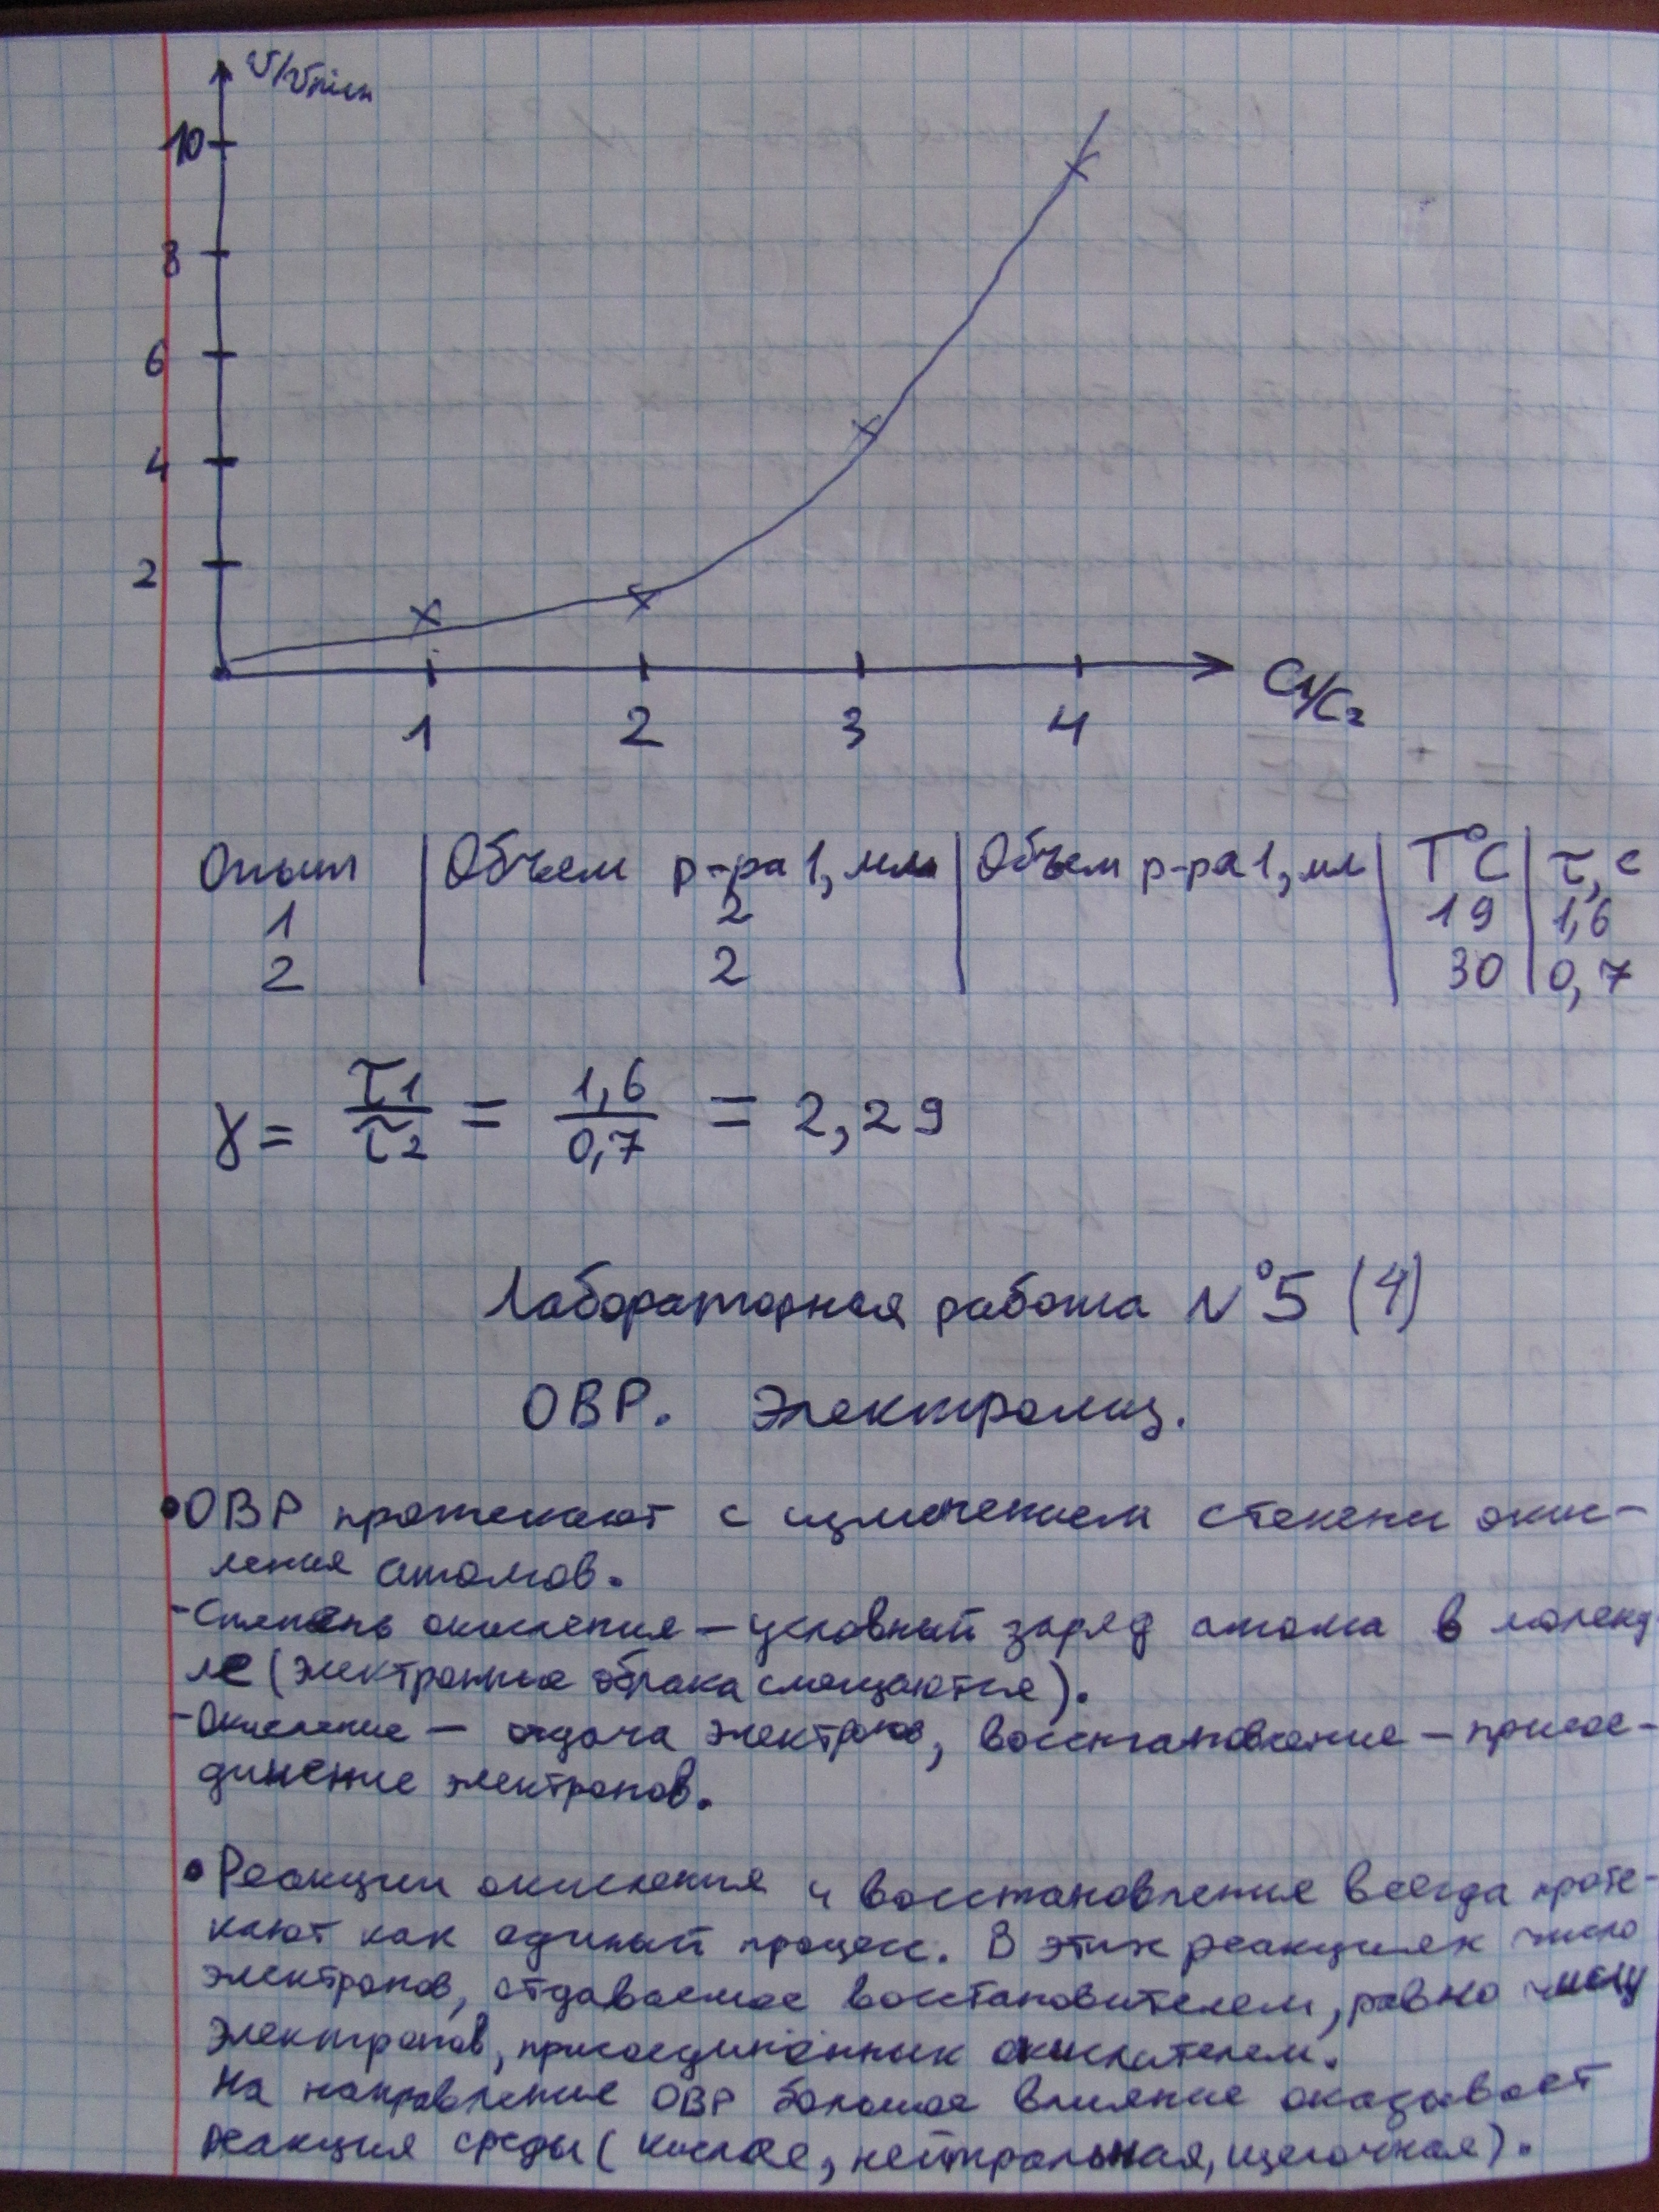 v/vmin
10
8
6
4
2
1 2 3 4 C1/C2
Опыт | Объем р-ра 1, мл | Объем р-ра 1, мл | T°C | τ, с
1 2 19 1,6
2 2 30 0,7
γ = τ1/τ2 = 1,6/0,7 = 2,29
Лабораторная работа №5 (4)
ОВР. Электролиз.
• ОВР протекают с изменением степени окис-
ления атомов.
- Степень окисления – условный заряд атома в молеку
ле (электронные облака смещаются).
- Окисление – отдача электронов, восстановление – присое-
динение электронов.
• Реакции окисления и восстановления всегда проте-
кают как единый процесс. В этих реакциях число
электронов, отдаваемое восстановителем, равно числу
электронов, присоединённых окислителем.
На направление ОВР большое влияние оказывает
реакция среды (кислая, нейтральная, щелочная).